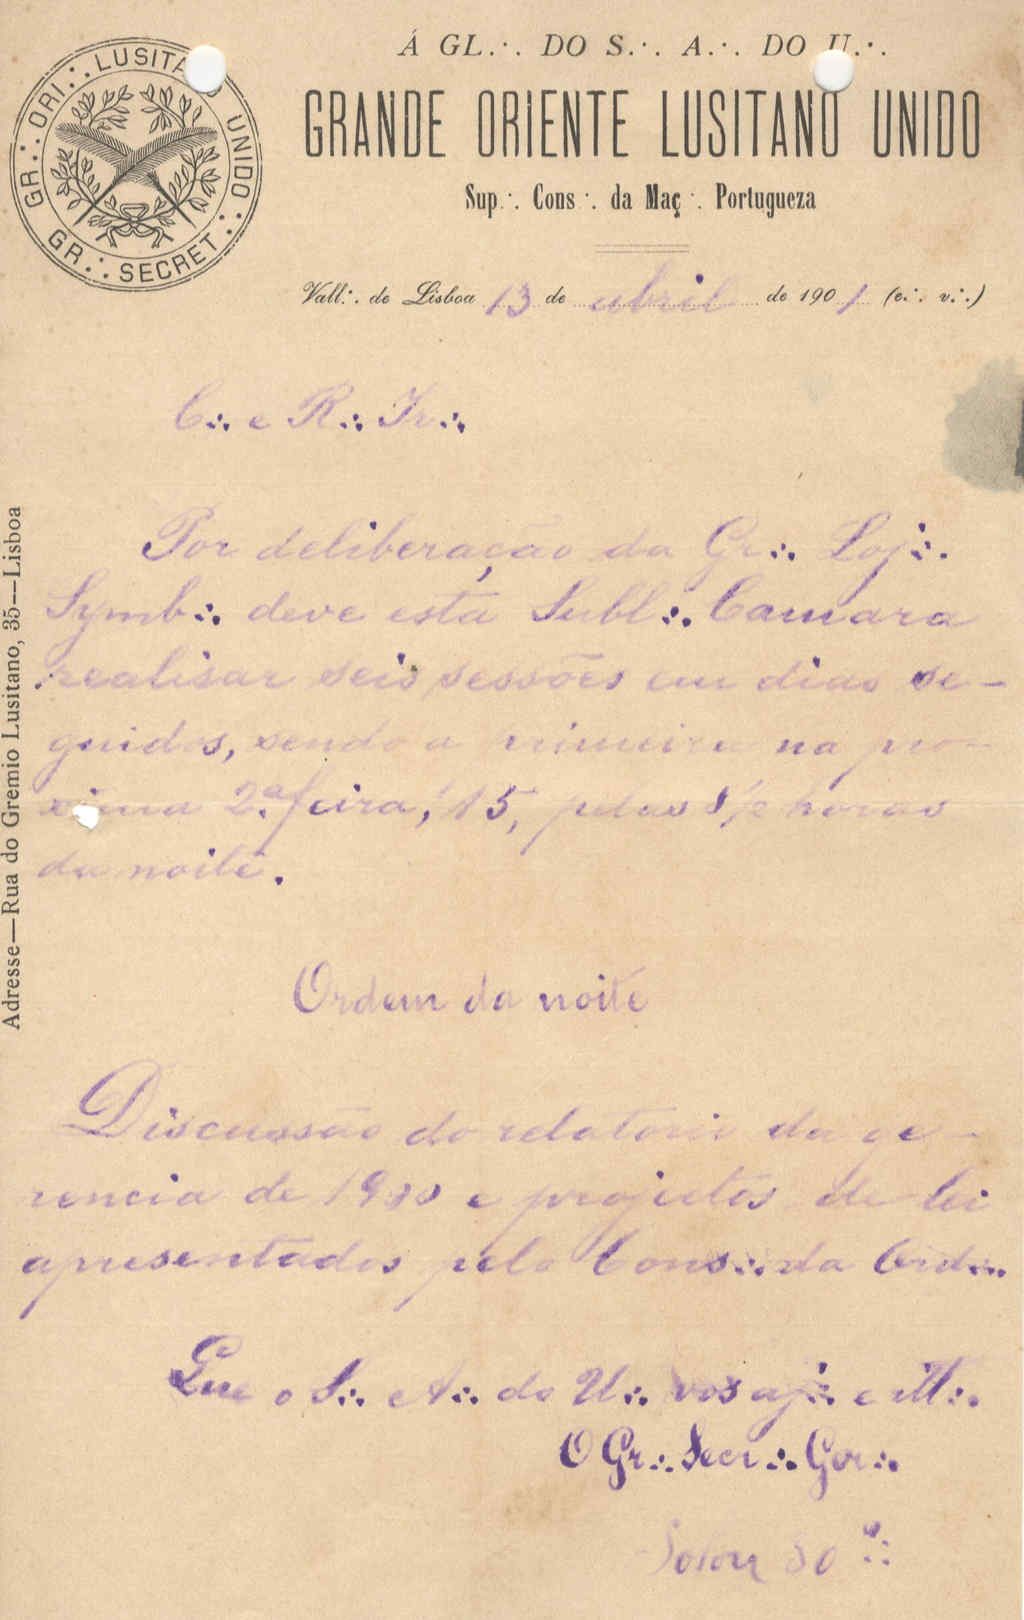 Á GL.·. DO S.·. A.·. DO U.·.
GR.·. ORI.·. LUSITANO UNIDO
GR.·. SECRET.·.
GRANDE ORIENTE LUSITANO UNIDO
Sup.·. Cons.·. da Maç.·. Portugueza
Vall.·. de Lisboa 13 de abril de 1901 (e.·. v.·.)
C.·. e R.·. Ir.·.
Por deliberação da Gr.·. Loj.·.
Symb.·. deve esta Subl.·. Camara
realisar seis sessões em dias se-
guidos, sendo a primeira na pro-
xima 2.ª feira, 15, pelas 8 1/2 horas
da noite.
Ordem da noite
Discussão do relatorio da ge-
rencia de 1900 e projectos de lei
apresentados pelo Cons.·. da Ord.·.
Que o S.·. A.·. do U.·. vos aj.·. e ill.·.
O Gr.·. Secr.·. Ger.·.
Solon 30.·.
Adresse—Rua do Gremio Lusitano, 35—Lisboa